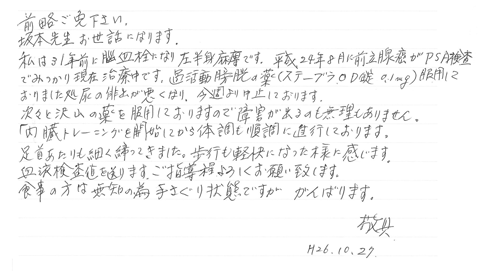 前略ご免下さい。
坂本先生お世話になります。
私は31年前に脳血栓になり左半身麻痺です。平成24年8月に前立腺癌がPSA検査
でみつかり現在治療中です。過活動膀胱の薬(ステーブラOD錠 0.1mg)服用して
おりました処尿の排出が悪くなり、今週より中止しております。
次々と沢山の薬を服用しておりますので障害が出るのも無理もありません。
「内臓トレーニング」を開始してから体調も順調に進行しております。
足首あたりも細く締ってきました。歩行も軽快になった様に感じます。
血液検査値を送ります。ご指導程よろしくお願い致します。
食事の方は無知の為手さぐり状態ですが がんばります。
敬具
H26.10.27.